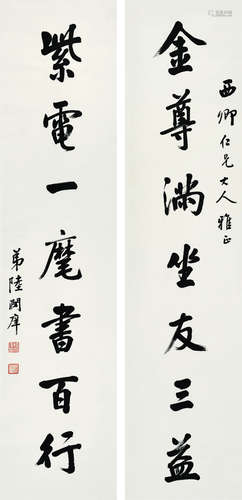 西卿仁兄大人雅正
金尊满坐友三益
紫電一麾書百行
弟陸潤庠